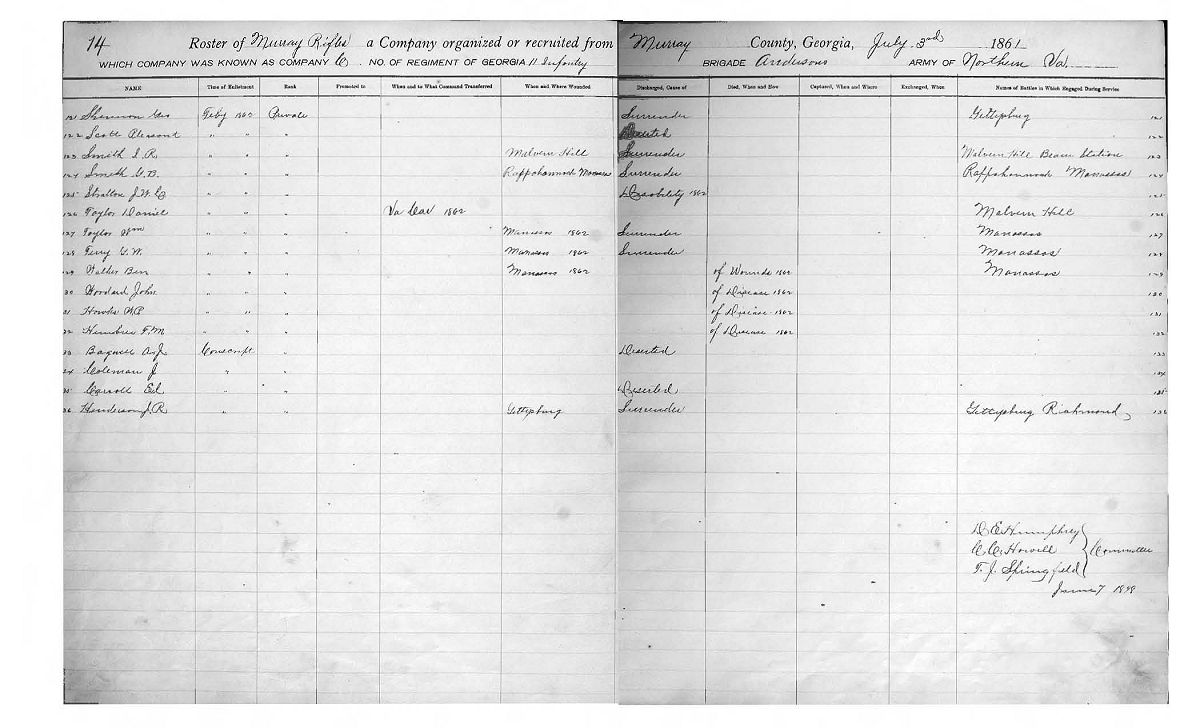 14 Roster of Murray Rifles a Company organized or recruited from Murray County, Georgia, July 3rd 1861
WHICH COMPANY WAS KNOWN AS COMPANY C. NO. OF REGIMENT OF GEORGIA 11 Infantry BRIGADE Andersons ARMY OF Northern Va.
NAME Time of Enlistment Rank Promoted to When and to What Command Transferred When and Where Wounded Discharged, Cause of Died, When and How Captured, When and Where Exchanged, When Names of Battles in Which Engaged During Service
121 Shannon Geo Feby 1862 Private Surrender Gettysburg 121
122 Scott Plesant " " " Deserted 122
123 Smith I. R. " " " Malvern Hill Surrender Malvern Hill Beans Station 123
124 Smith G. B. " " " Rappahannock Manassas Surrender Rappahannock Manassas 124
125 Stratton J. W. C. " " " Disability 1862 125
126 Taylor Daniel " " " Va Cav 1862 Malvern Hill 126
127 Taylor Wm " " " Manassas 1862 Surrender Manassas 127
128 Terry G. W. " " " Manassas 1862 Surrender Manassas 128
129 Walker Ben " " " Manassas 1862 of Wounds 1862 Manassas 129
30 Woodard John " " " of Disease 1862 130
31 W.P. " " " of Disease 1862 131
32 Hembree F. M. " " " of Disease 1862 132
33 Bagwell A. J. Conscript " Deserted 133
34 Coleman J " " 134
35 Carroll Ed " " Deserted 135
36 Henderson J. R. " " Gettysburg Surrender Gettysburg Richmond 136
D. E. Humphrey
C. C. Howell Committee
T. J. Springfield
June 7 1898